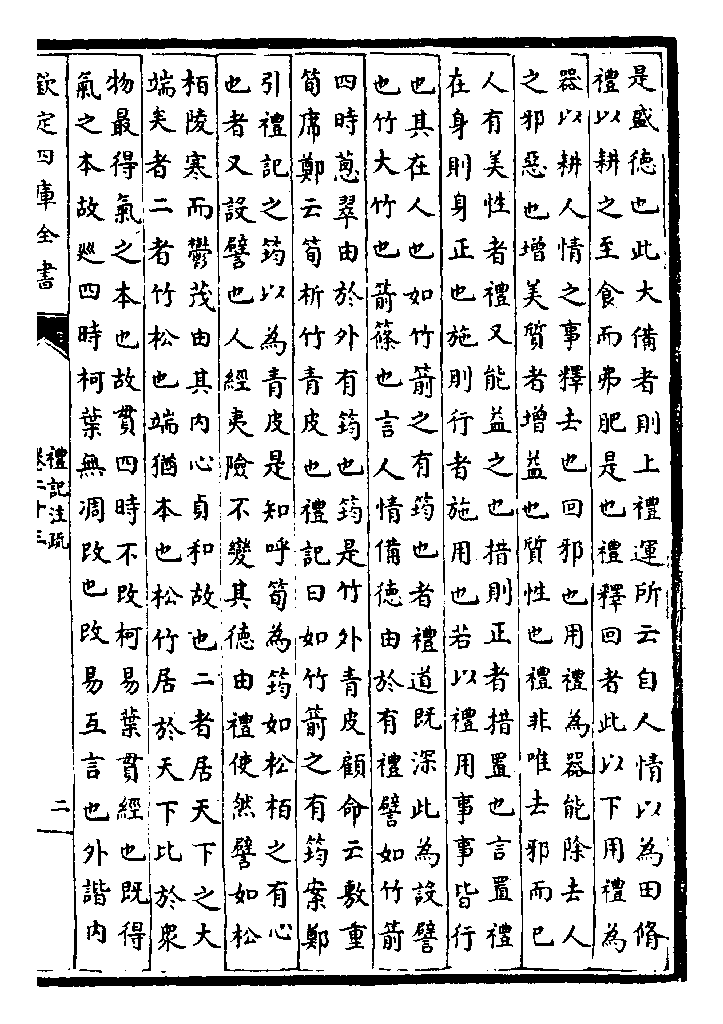 是盛德也此大備者則上禮運所云自人情以為田脩
禮以耕之至食而弗肥是也禮釋回者此以下用禮為
器以耕人情之事釋去也回邪也用禮為器能除去人
之邪惡也增美質者增益也質性也禮非唯去邪而已
人有美性者禮又能益之也措則正者措置也言置禮
在身則身正也施則行者施用也若以禮用事事皆行
也其在人也如竹箭之有筠也者禮道既深此為設譬
也竹大竹也箭篠也言人情備德由於有禮譬如竹箭
四時蔥翠由於外有筠也筠是竹外青皮顧命云敷重
筍席鄭云筍析竹青皮也禮記曰如竹箭之有筠案鄭
引禮記之筠以為青皮是知呼筍為筠如松柏之有心
也者又設譬也人經夷險不變其德由禮使然譬如松
栢陵寒而鬱茂由其內心貞和故也二者居天下之大
端矣者二者竹松也端猶本也松竹居於天下比於眾
物最得氣之本也故貫四時不改柯易葉貫經也既得
氣之本故廵四時柯葉無凋改也改易互言也外諧內
欽定四庫全書
禮記注疏
卷二十三
二